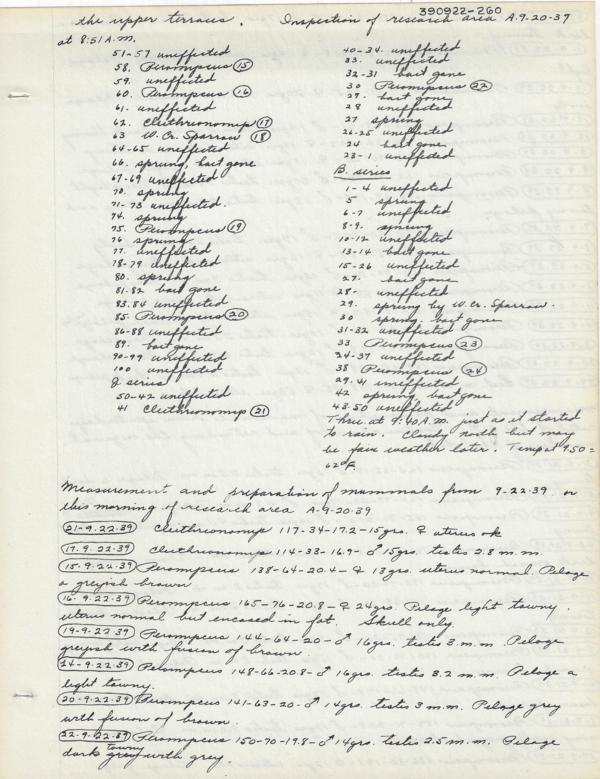 390922-260
the upper terraces. Inspection of research area A-9-20-39
at 8:51 A.M.
51-57 uneffected
58. Peromyscus (15)
59. uneffected
60. Peromyscus (16)
61. uneffected
62. Cleithrionomys (17)
63 W. Cr. Sparrow (18)
64-65 uneffected
66. sprung, bait gone
67-69 uneffected
70. sprung
71-73 uneffected.
74. sprung
75. Peromyscus (19)
76 sprung
77. uneffected
78-79 uneffected
80. sprung
81.82 bait gone
83.84 uneffected
85. Peromyscus (20)
86-88 uneffected
89. bait gone
90-99 uneffected
100 uneffected
J series
50-42 uneffected
41 Cleithrionomys (21)
40-34. uneffected
33. uneffected
32-31 bait gone
30 Peromyscus (22)
29. bait gone
28 uneffected
27 sprung
26-25 uneffected
24 bait gone
23-1 uneffected
B. series
1-4 uneffected
5 sprung
6-7 uneffected
8-9. sprung
10-12 uneffected
13-14 bait gone
15-26 uneffected
27. bait gone
28- uneffected
29. sprung by W. Cr. Sparrow.
30 sprung. bait gone
31-32 uneffected
33 Peromyscus (23)
34-37 uneffected
38 Peromyscus (24)
39.41 uneffected
42 sprung, bait gone
43-50 uneffected
Thru at 9:40 A.M. just as it started
to rain. Cloudy north but may
be fair weather later. Temp at 9.50 =
62°F.
Measurement and preparation of mammals from 9-22-39 on
this morning of research area A-9-20-39
(21-9.22.39) Cleithrionomys 117-34-17.2-15grs. ♀ uterus ok
(17.9.22.39) Cleithrionomys 114-33-16.9- ♂ 15grs. testes 2.8 m.m.
(15-9.22.39) Peromyscus 138-64-20.4- ♀ 13grs. uterus normal. Pelage
a greyish brown
(16.9.22.39) Peromyscus 165-76-20.8- ♀ 24grs. Pelage light tawny.
uterus normal but encased in fat. Skull only.
(19-9.22.39) Peromyscus 144-64-20-♂ 16grs. testes 3.m.m. Pelage
greyish with fusion of brown.
(24-9.22.39) Peromyscus 148-66-20.8- ♂ 16grs. testes 3.2 m.m. Pelage a
light tawny.
(20-9.22.39) Peromyscus 141-63-20-♂ 14grs. testes 3 m.m. Pelage grey
with fusion of brown.
(22-9.22.39) Peromyscus 150-70-19.8-♂ 14grs. testes 2.5 m.m. Pelage
dark tawny grey with grey.